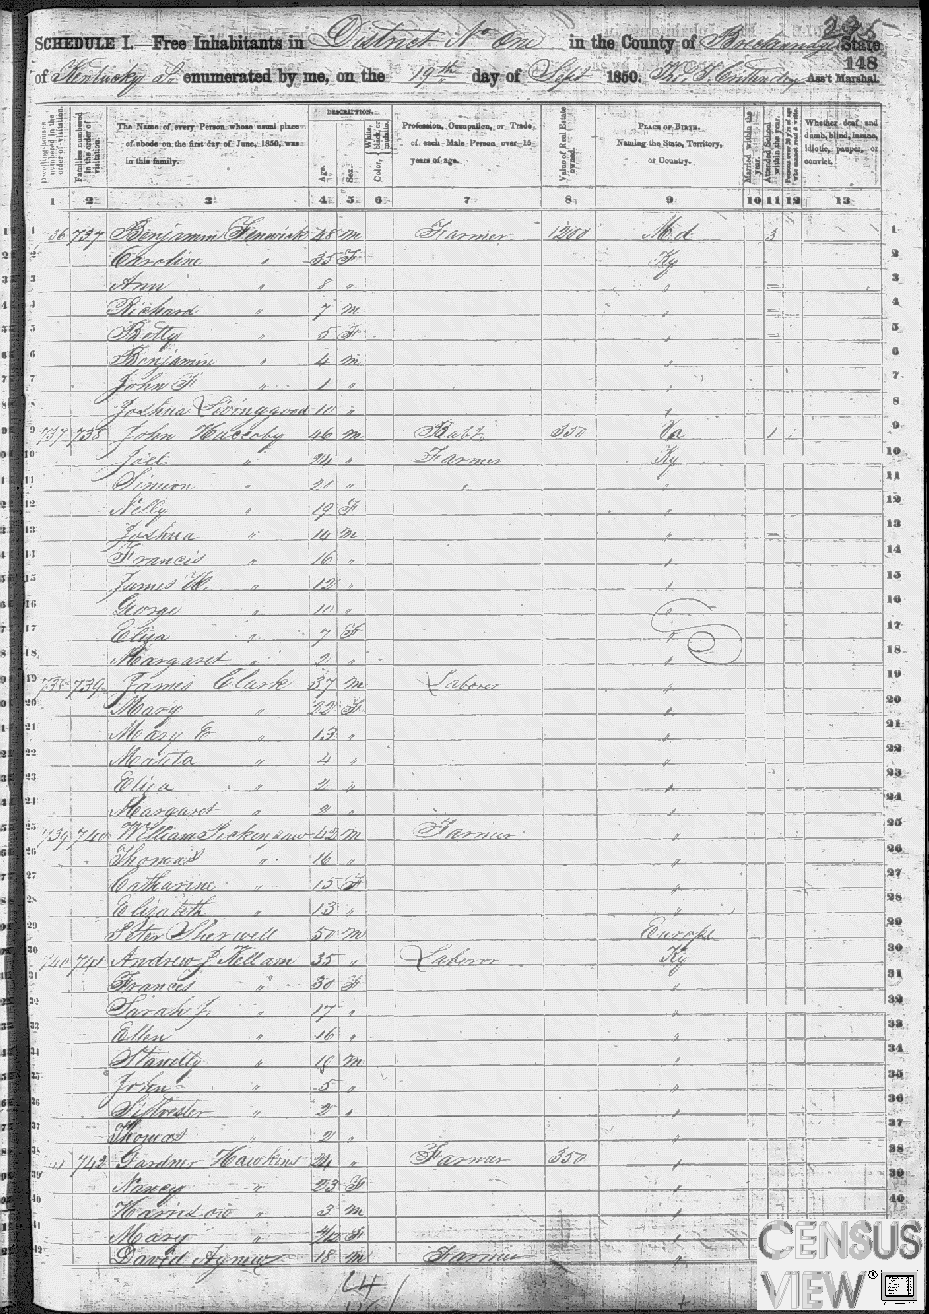 295
SCHEDULE I.—Free Inhabitants in District No One in the County of Breckinridge State
148
of Kentucky enumerated by me, on the 19th day of Sept 1850. Ass't Marshal.
Dwelling-houses numbered in the order of visitation.
Families numbered in the order of visitation.
The Name of every Person whose usual place of abode on the first day of June, 1850, was in this family.
DESCRIPTION.
Age.
Sex.
Color, White, black, or mulatto.
Profession, Occupation, or Trade of each Male Person over 15 years of age.
Value of Real Estate owned.
PLACE OF BIRTH. Naming the State, Territory, or Country.
Married within the year.
Attended School within the year.
Whether deaf and dumb, blind, insane, idiotic, pauper, or convict.
1 2 3 4 5 6 7 8 9 10 11 12 13
1 36 737 Benjamin Fenwick 48 m Farmer 1200 Md 3 1
2 Caroline " 35 F Ky 2
3 Ann " 8 " " 3
4 Richard " 7 m " 4
5 Betty " 5 F " 5
6 Benjamin " 4 m " 6
7 John F " 1 " " 7
8 Joshua Livinggood 10 " " 8
9 737 738 John 46 m 350 Va 1 9
10 Joel " 24 " Farmer Ky 10
11 Simeon " 21 " " " 11
12 Nelly " 19 F " 12
13 Joshua " 14 m " 13
14 Francis " 16 " " 14
15 James W. " 12 " " 15
16 George " 10 " " 16
17 Eliza " 7 F " 17
18 Margaret " 2 " " 18
19 738 739 James Clark 37 m Laborer " 19
20 Mary " 22 F " 20
21 Mary E " 13 " " 21
22 " 4 " " 22
23 Eliza " 2 " " 23
24 Margaret " 2 " " 24
25 739 740 William 42 m Farmer " 25
26 Thomas " 16 " " 26
27 Catharine " 15 F " 27
28 Elizabeth " 13 " " 28
29 Peter 50 m Europe 29
30 740 741 Andrew J Kellam 35 " Laborer Ky 30
31 Frances " 30 F " 31
32 Sarah J. " 17 " " 32
33 Ellen " 16 " " 33
34 " 18 m " 34
35 John " 5 " " 35
36 Silvester " 2 " " 36
37 Thomas " 2 " " 37
38 742 Gardner Hawkins 24 " Farmer 350 " 38
39 Nancy " 23 F " 39
40 Harrison " 3 m " 40
41 Mary " F "
42 David 18 m Farmer "
CENSUS
VIEW®